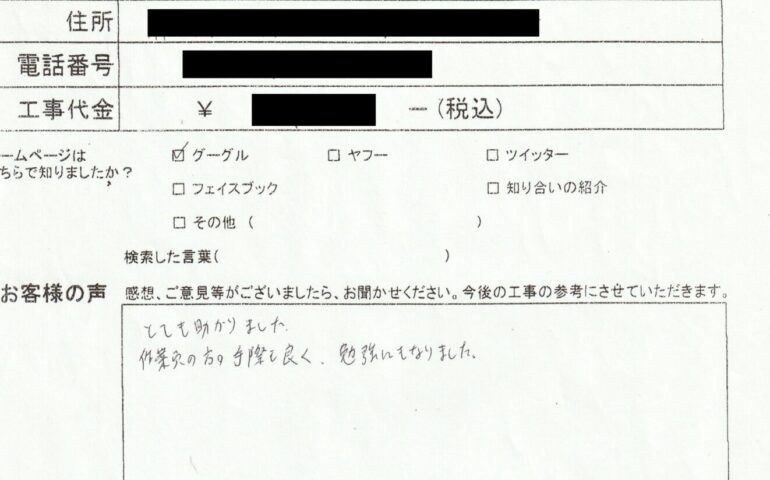 住所
電話番号
工事代金 ¥ ー(税込)
ームページは
ちらで知りましたか？
☑ グーグル □ ヤフー □ ツイッター
□ フェイスブック □ 知り合いの紹介
□ その他 ( )
検索した言葉( )
お客様の声 感想、ご意見等がございましたら、お聞かせください。今後の工事の参考にさせていただきます。
とても助かりました。
作業員の方の手際も良く、勉強にもなりました。